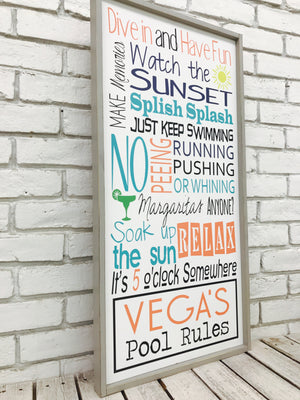 Dive in and Have Fun
MAKE Memories
Watch the
SUNSET
Splish Splash
JUST KEEP SWIMMING
NO
PEEING
RUNNING
PUSHING
OR WHINING
Margaritas ANYONE?
Soak up
the sun
RELAX
It's 5 o'clock Somewhere
VEGA'S
Pool Rules